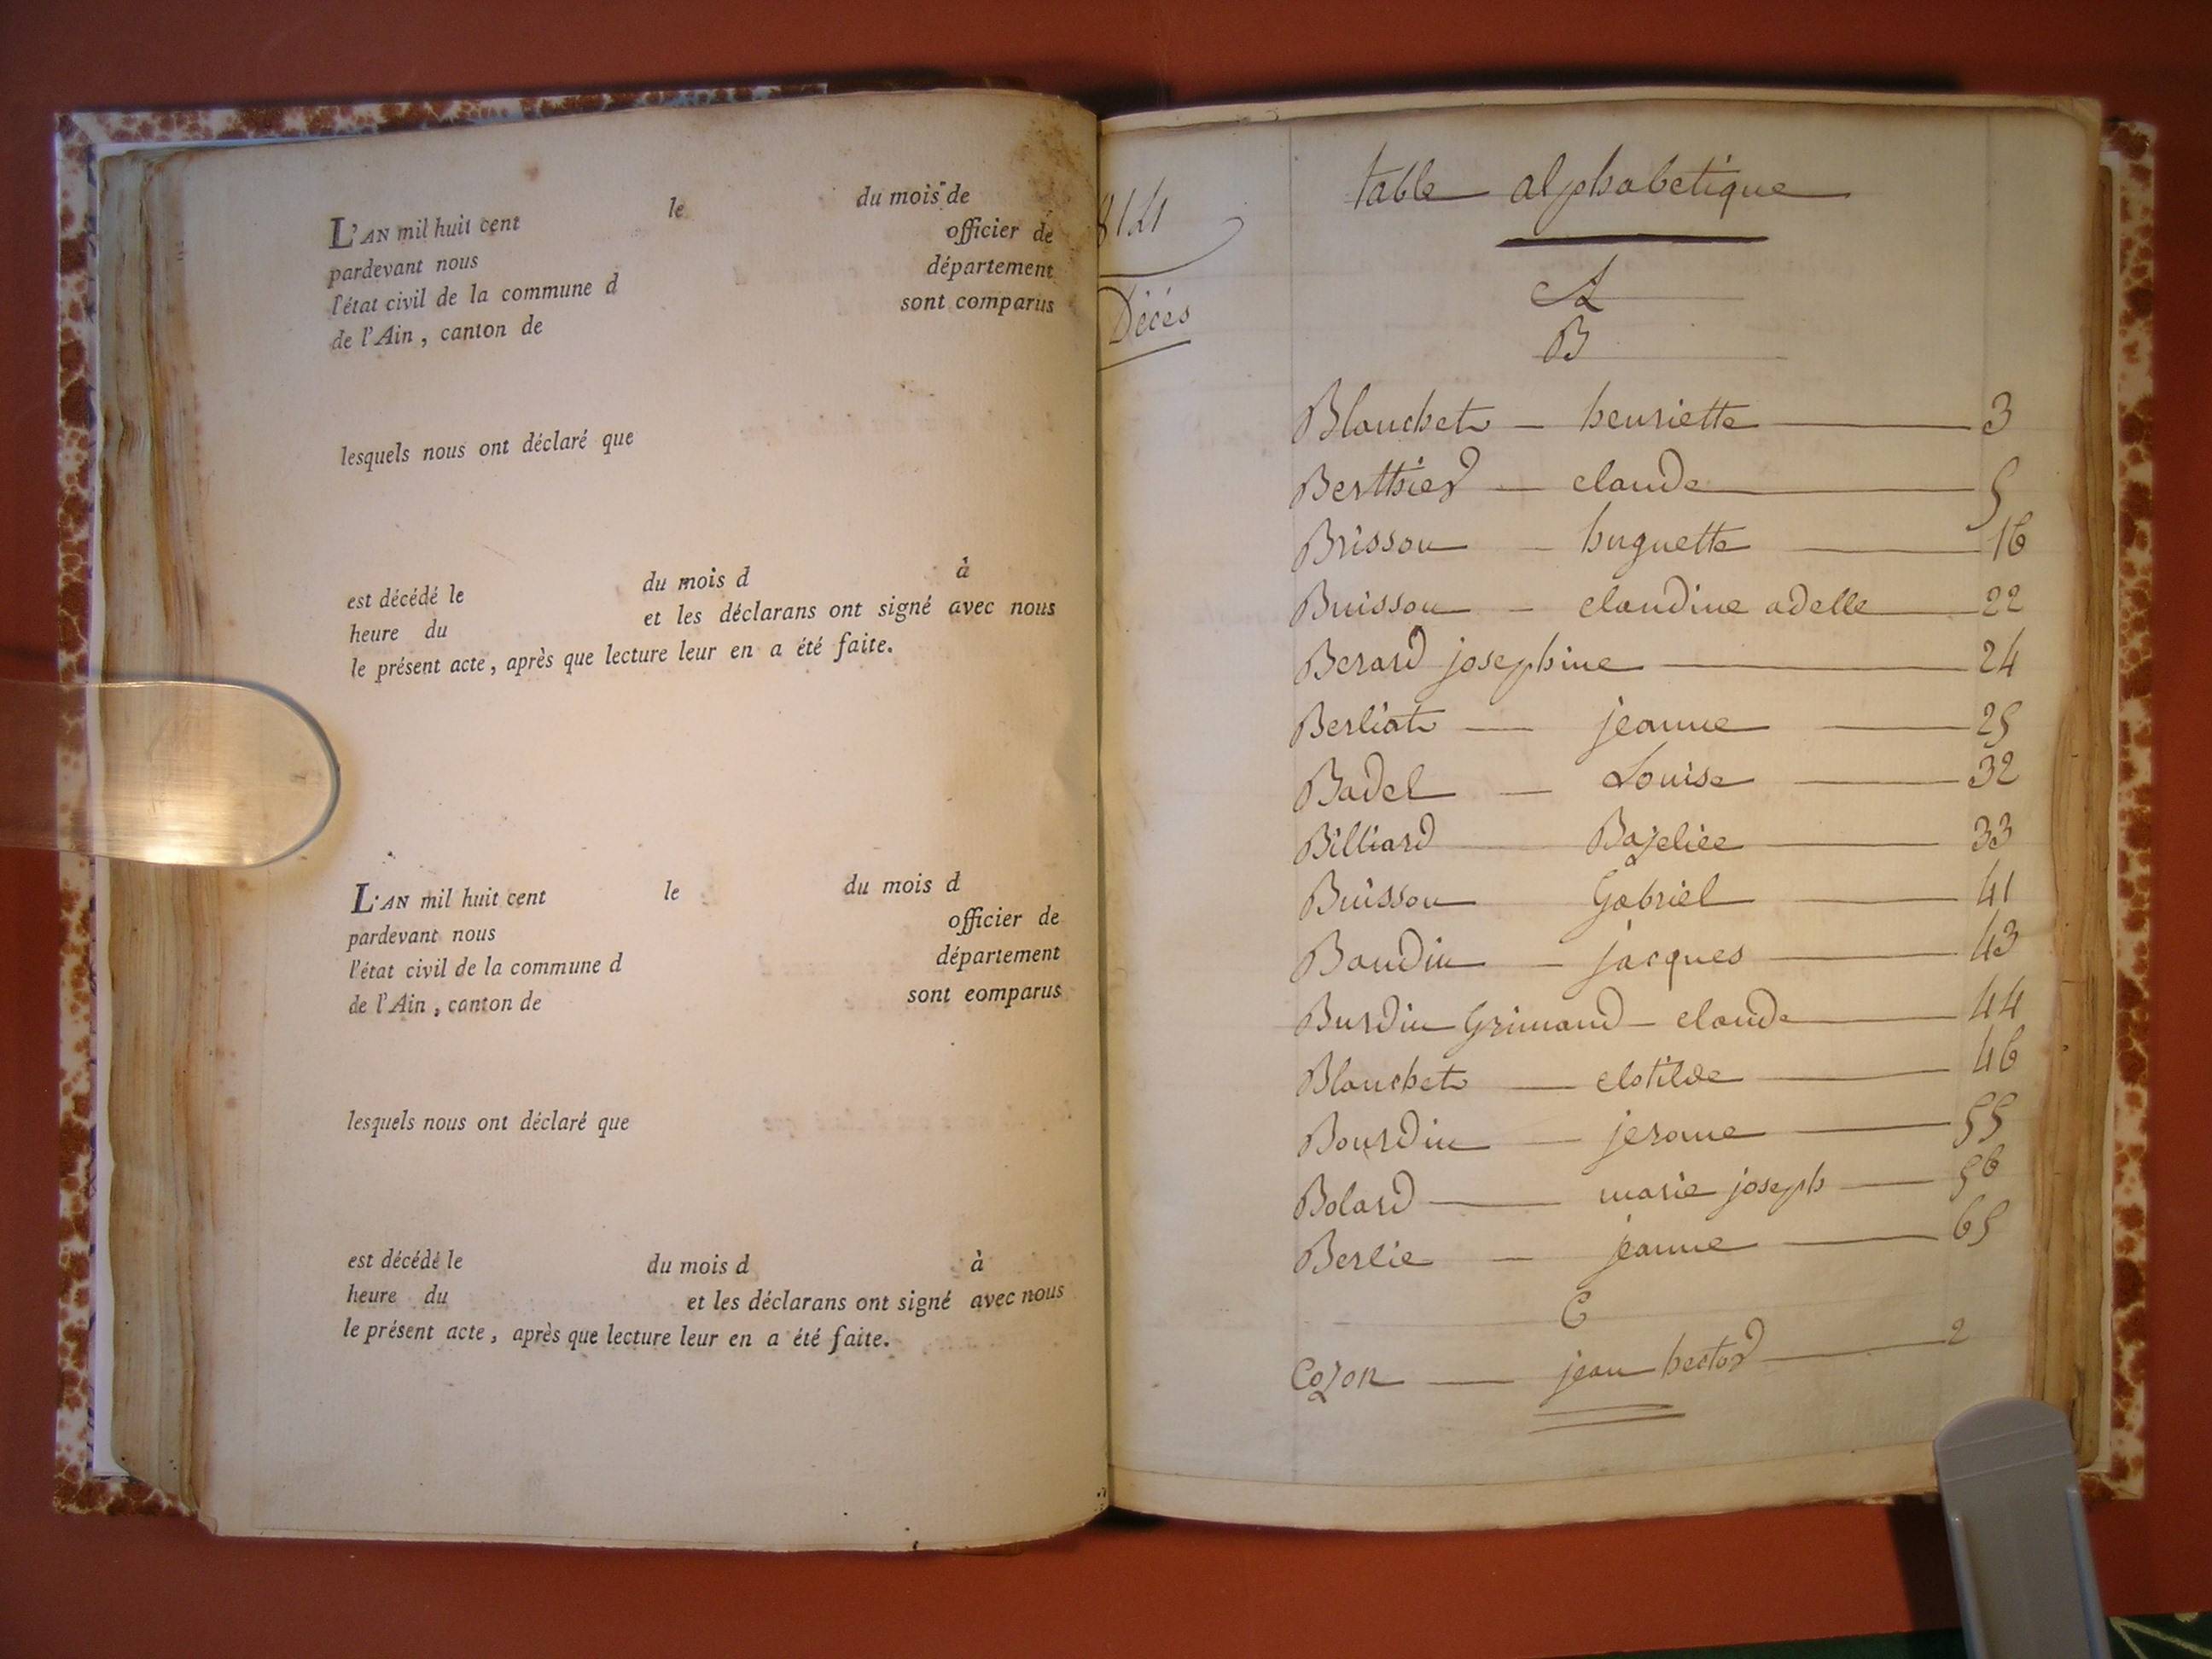 L'AN mil huit cent le du mois de
pardevant nous officier de
l'état civil de la commune d département
de l'Ain, canton de sont comparus
lesquels nous ont déclaré que
est décédé le du mois d à
heure du et les déclarans ont signé avec nous
le présent acte, après que lecture leur en a été faite.
L'AN mil huit cent le du mois d
pardevant nous officier de
l'état civil de la commune d département
de l'Ain, canton de sont eomparus
lesquels nous ont déclaré que
est décédé le du mois d à
heure du et les déclarans ont signé avec nous
le présent acte, après que lecture leur en a été faite.
814
Décés
table alphabetique
A
B
Blanchet — henriette — 3
Berthier — claude — 5
Brisson — huguette — 16
Buisson — claudine adelle — 22
Berard josephine — 24
Berliat — jeanne — 25
Badel — Louise — 32
Billiard — 33
Buisson Gabriel — 41
Baudin — jacques — 43
Burdin Grimaud — claude — 44
Blanchet — clotilde — 46
Bourdin — jerome — 55
Bolard — marie joseph — 56
Berlie — jeanne — 65
C
Cozon — jean hector — 2